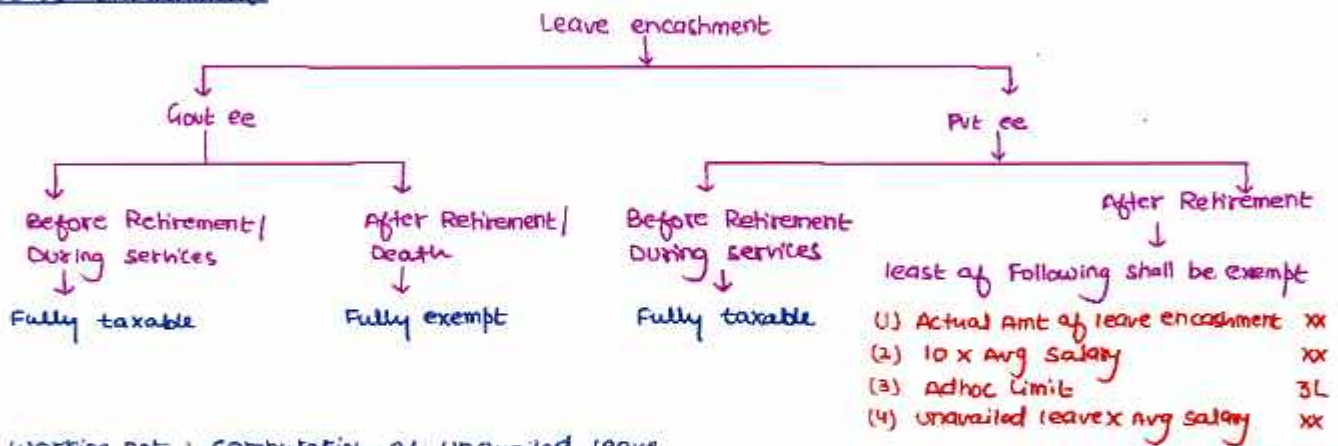 Leave encashment
Govt ee
Pvt ee
Before Retirement/
During services
Fully taxable
After Retirement/
Death
Fully exempt
Before Retirement
During services
Fully taxable
After Retirement
least of Following shall be exempt
(1) Actual Amt of leave encashment xx
(2) 10 x Avg salary xx
(3) Adhoc Limit 3L
(4) unavailed leave x Avg salary xx
computation of unavailed leave